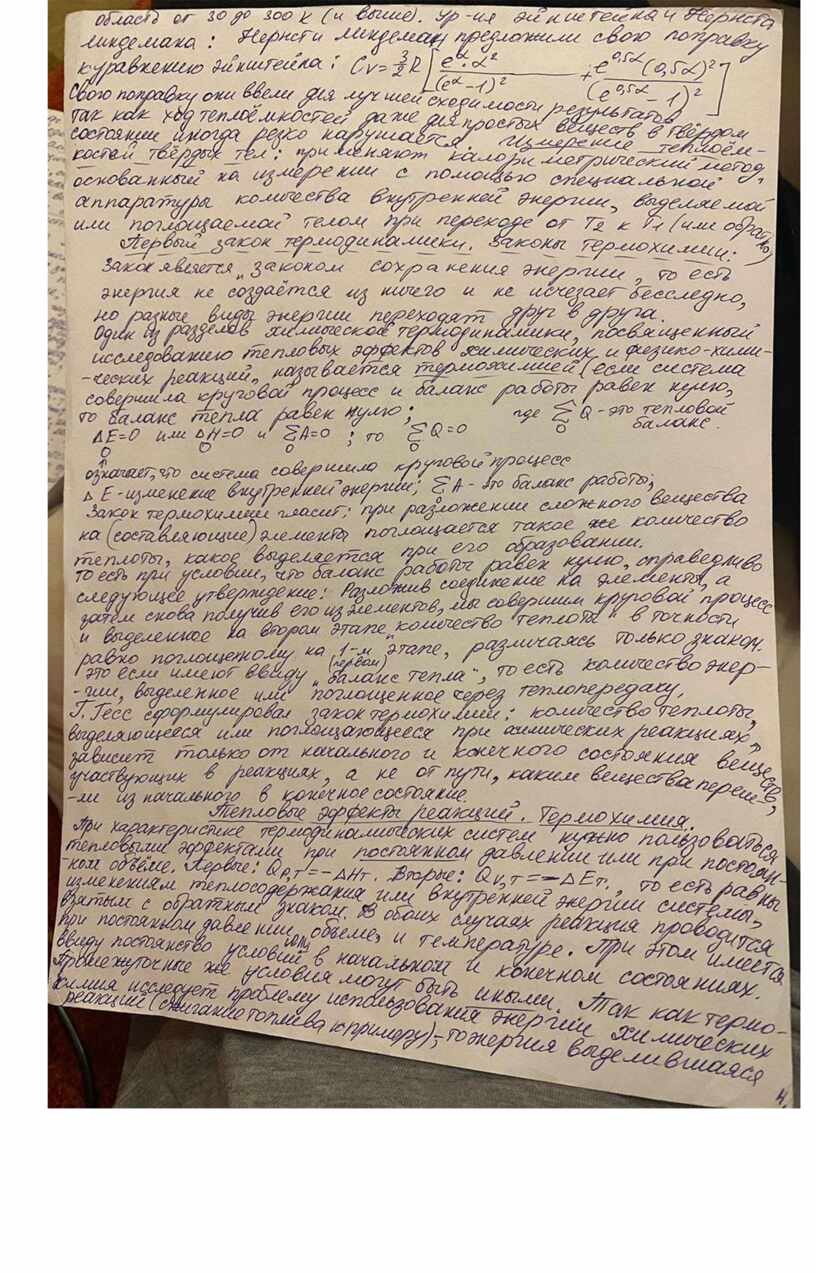 область от 30 до 300 К (и выше). Ур-ия Эйнштейна и Нернста
Линдемана: Нернст и Линдеман предложили свою поправку
к уравнению Эйнштейна: Cv = 3/2 R [ e^α · α² / (e^α − 1)² + e^0,5α (0,5α)² / (e^0,5α − 1)² ]
Свою поправку они ввели для лучшей сходимости результатов
так как ход теплоёмкостей даже для простых веществ в твёрдом
состоянии иногда резко нарушается. Измерение теплоём-
костей твёрдых тел: применяют калориметрический метод,
основанный на измерении с помощью специальной
аппаратуры количества внутренней энергии, выделяемой
или поглощаемой телом при переходе от T2 к T1 (или обратно)
Первый закон термодинамики. Законы термохимии:
Закон является „законом сохранения энергии", то есть
энергия не создаётся из ничего и не исчезает бесследно,
но разные виды энергии переходят друг в друга.
Один из разделов химической термодинамики, посвященный
исследованию тепловых эффектов химических и физико-хими-
-ческих реакций, называется термохимией (если система
совершила круговой процесс и баланс работы равен нулю,
то баланс тепла равен нулю; где Σ Q - это тепловой
0 баланс.
ΔE=0 или ΔH=0 и Σ A=0 ; то Σ Q=0
0 0 0 0
означает, что система совершила круговой процесс
ΔE - изменение внутренней энергии; Σ A - это баланс работы;
0
Закон термохимии гласит: при разложении сложного вещества
на (составляющие) элементы поглощается такое же количество
теплоты, какое выделяется при его образовании.
то есть при условии, что баланс работы равен нулю, справедливо
следующее утверждение: Разложив соединение на элементы, а
затем снова получив его из элементов, мы совершим круговой процесс
и выделенное на втором этапе „количество теплоты" в точности
равно поглощенному на 1-м этапе, различаясь только знаком.
(первом)
это если имеют ввиду „баланс тепла", то есть количество энер-
-гии, выделенное или поглощенное через теплопередачу,
Г. Гесс сформулировал закон термохимии: количество теплоты,
выделяющееся или поглощающееся при химических реакциях,
зависит только от начального и конечного состояния веществ,
участвующих в реакциях, а не от пути, каким вещества переш-
-ли из начального в конечное состояние.
Тепловые эффекты реакций. Термохимия.
При характеристике термодинамических систем нужно пользоваться
тепловыми эффектами при постоянном давлении или при постоян-
-ном объёме. Первые: Qp,т = − ΔHт. Вторые: Qv,т = − ΔEт, то есть равны
изменениям теплосодержания или внутренней энергии системы,
взятым с обратным знаком. В обоих случаях реакция проводится
при постоянном давлении, объеме, и температуре. При этом имеется
ввиду постоянство условий в начальном и конечном состояниях.
Промежуточные же условия могут быть иными. Так как термо-
химия исследует проблему использования энергии химических
реакций (сжигание топлива к примеру), - то энергия выделившаяся
4.